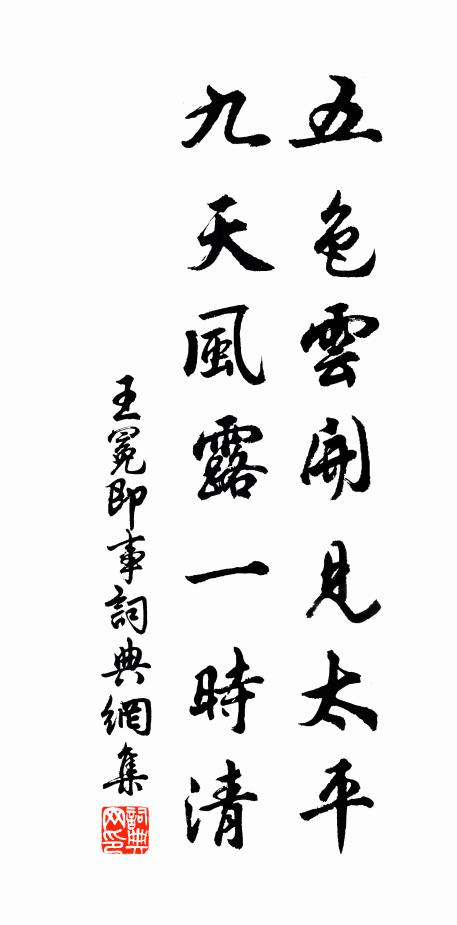 五色雲開見太平
九天風露一時清
王冕即事詞典網集
詞典網印